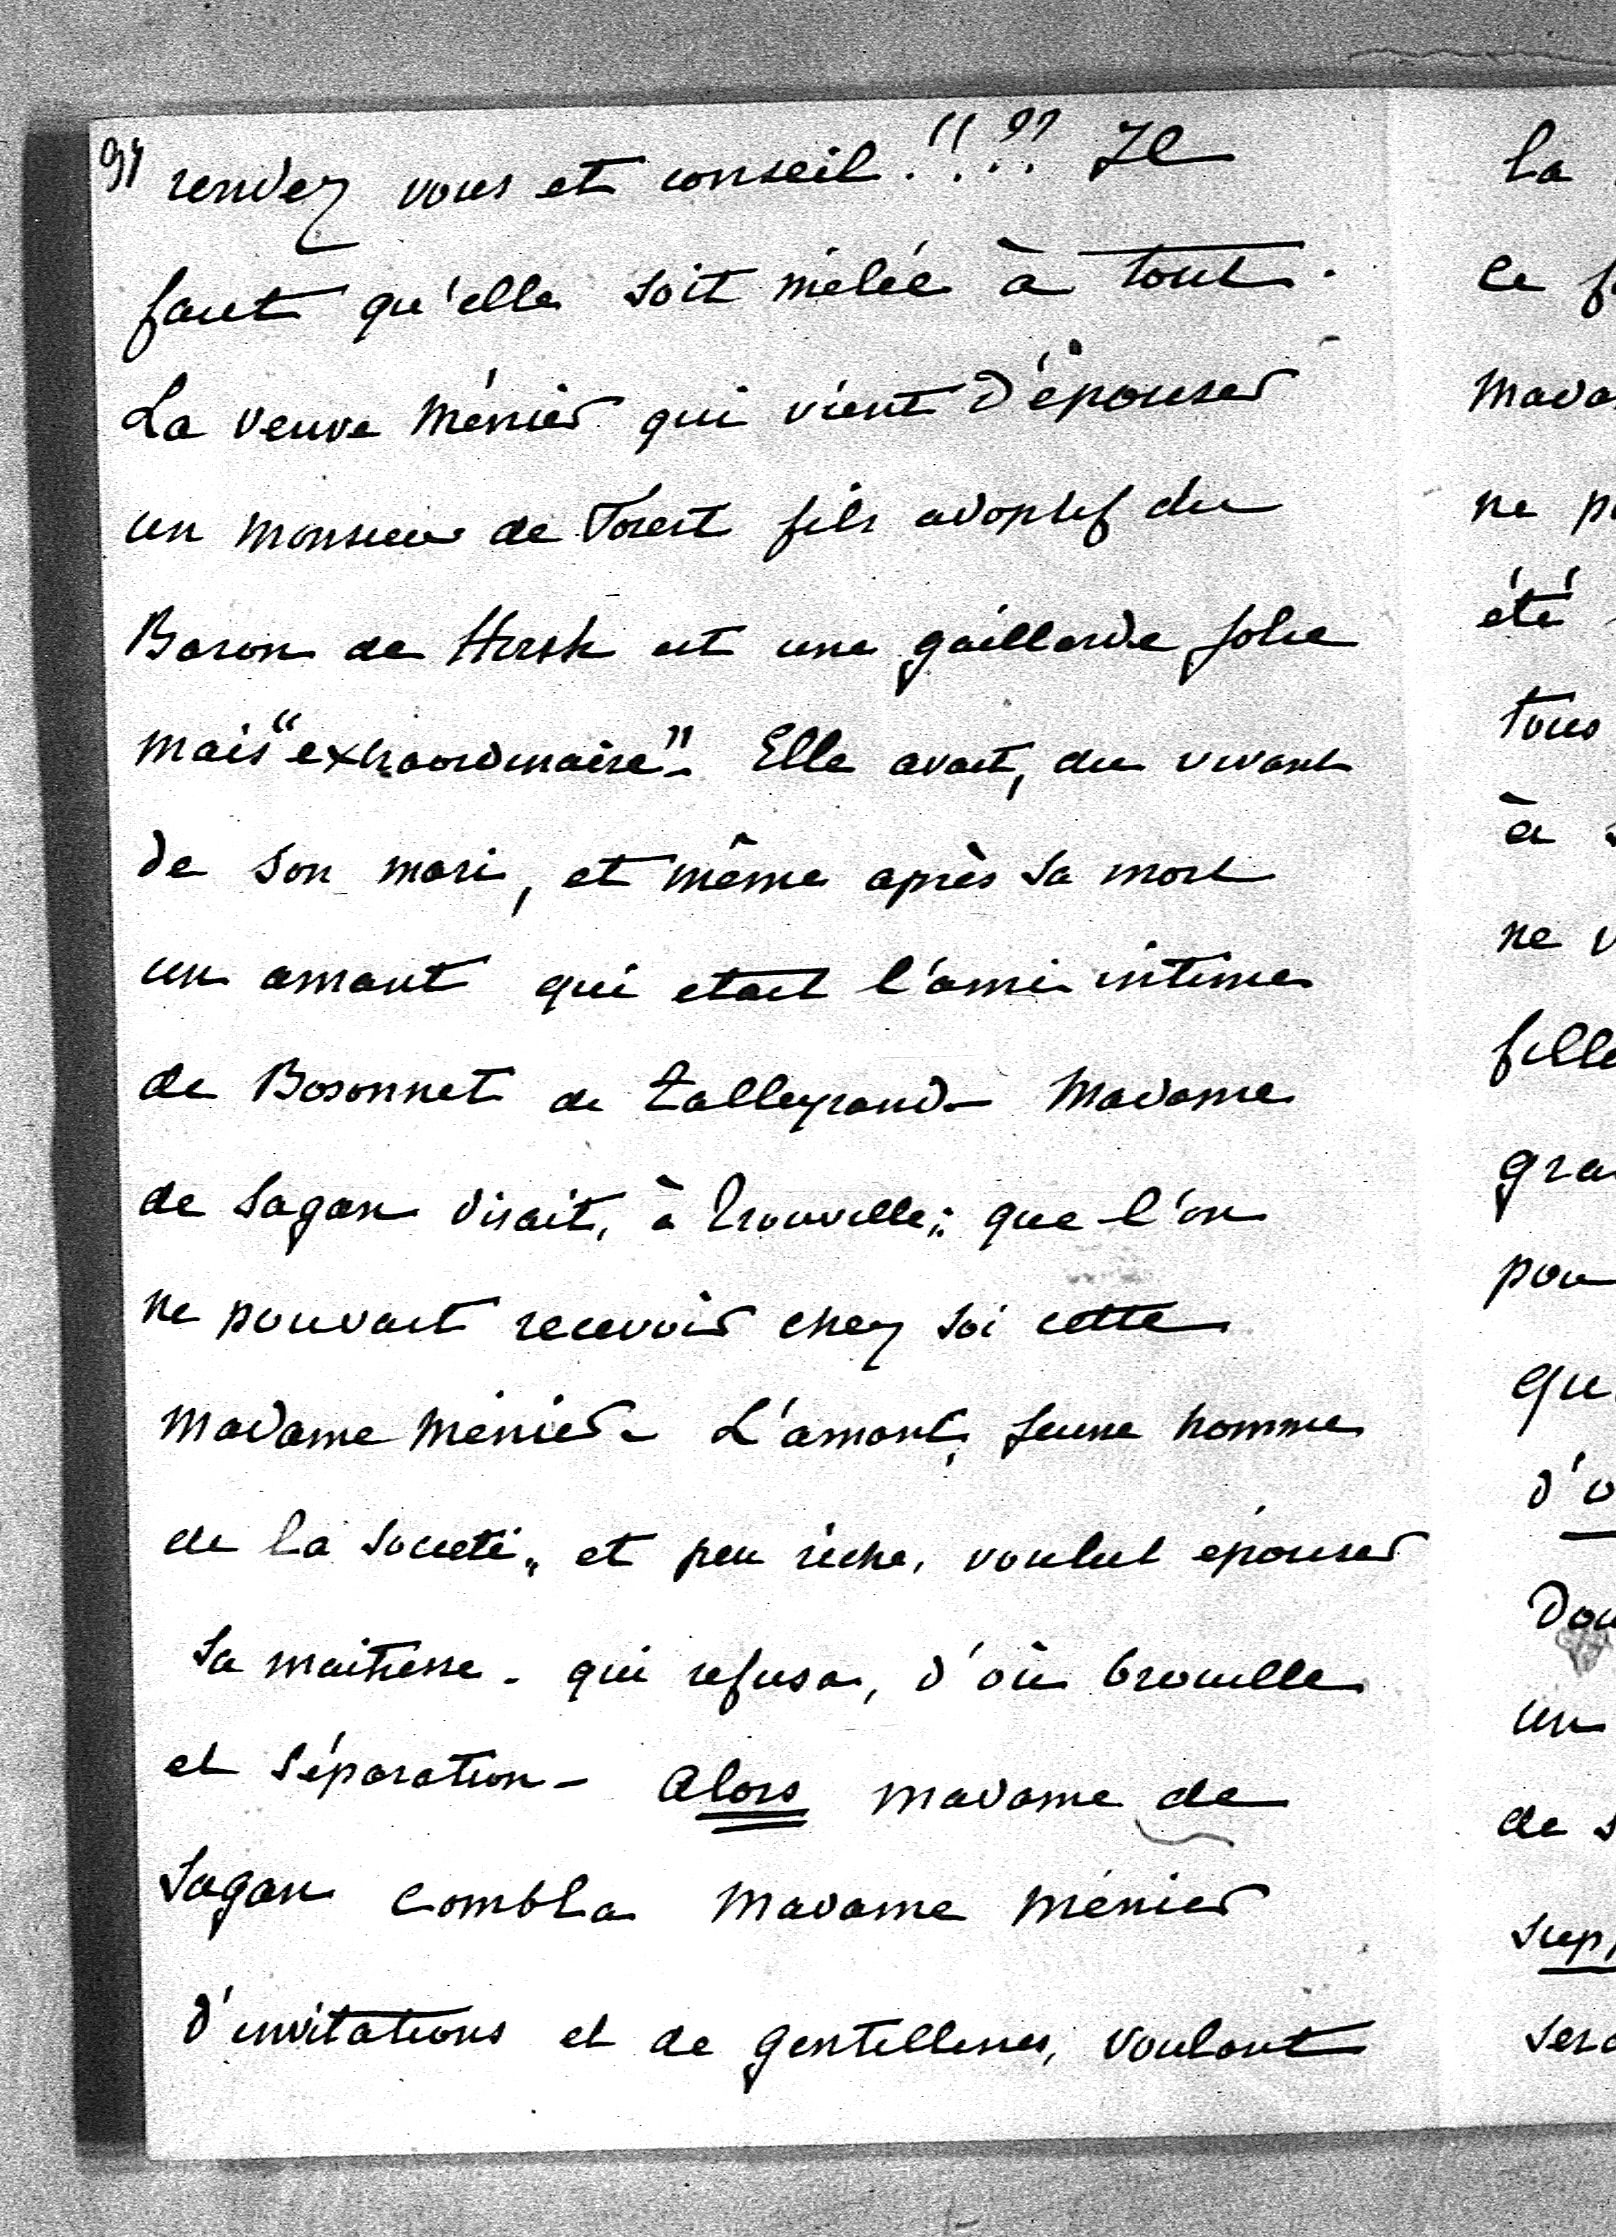 94 rendez vous et conseil!!?? Il
faut qu'elle soit mêlée à tout.
La veuve Ménier qui vient d'épouser
un monsieur de Forest fils adoptif du
Baron de Hirsh est une gaillarde jolie
mais "extraordinaire". Elle avait, du vivant
de son mari, et même après sa mort
un amant qui etait l'ami intime
de Bosonnet de Talleyrand - Madame
de Sagan disait, à Trouville; que l'on
ne pouvait recevoir chez soi cette
Madame Ménier - L'amant, jeune homme
de la societé, et peu riche, voulut épouser
sa maitresse - qui refusa, d'où brouille
et séparation - Alors madame de
Sagan combla Madame Ménier
d'invitations et de gentillesses, voulant
la
ce
ne
été
tous
à
ne
de